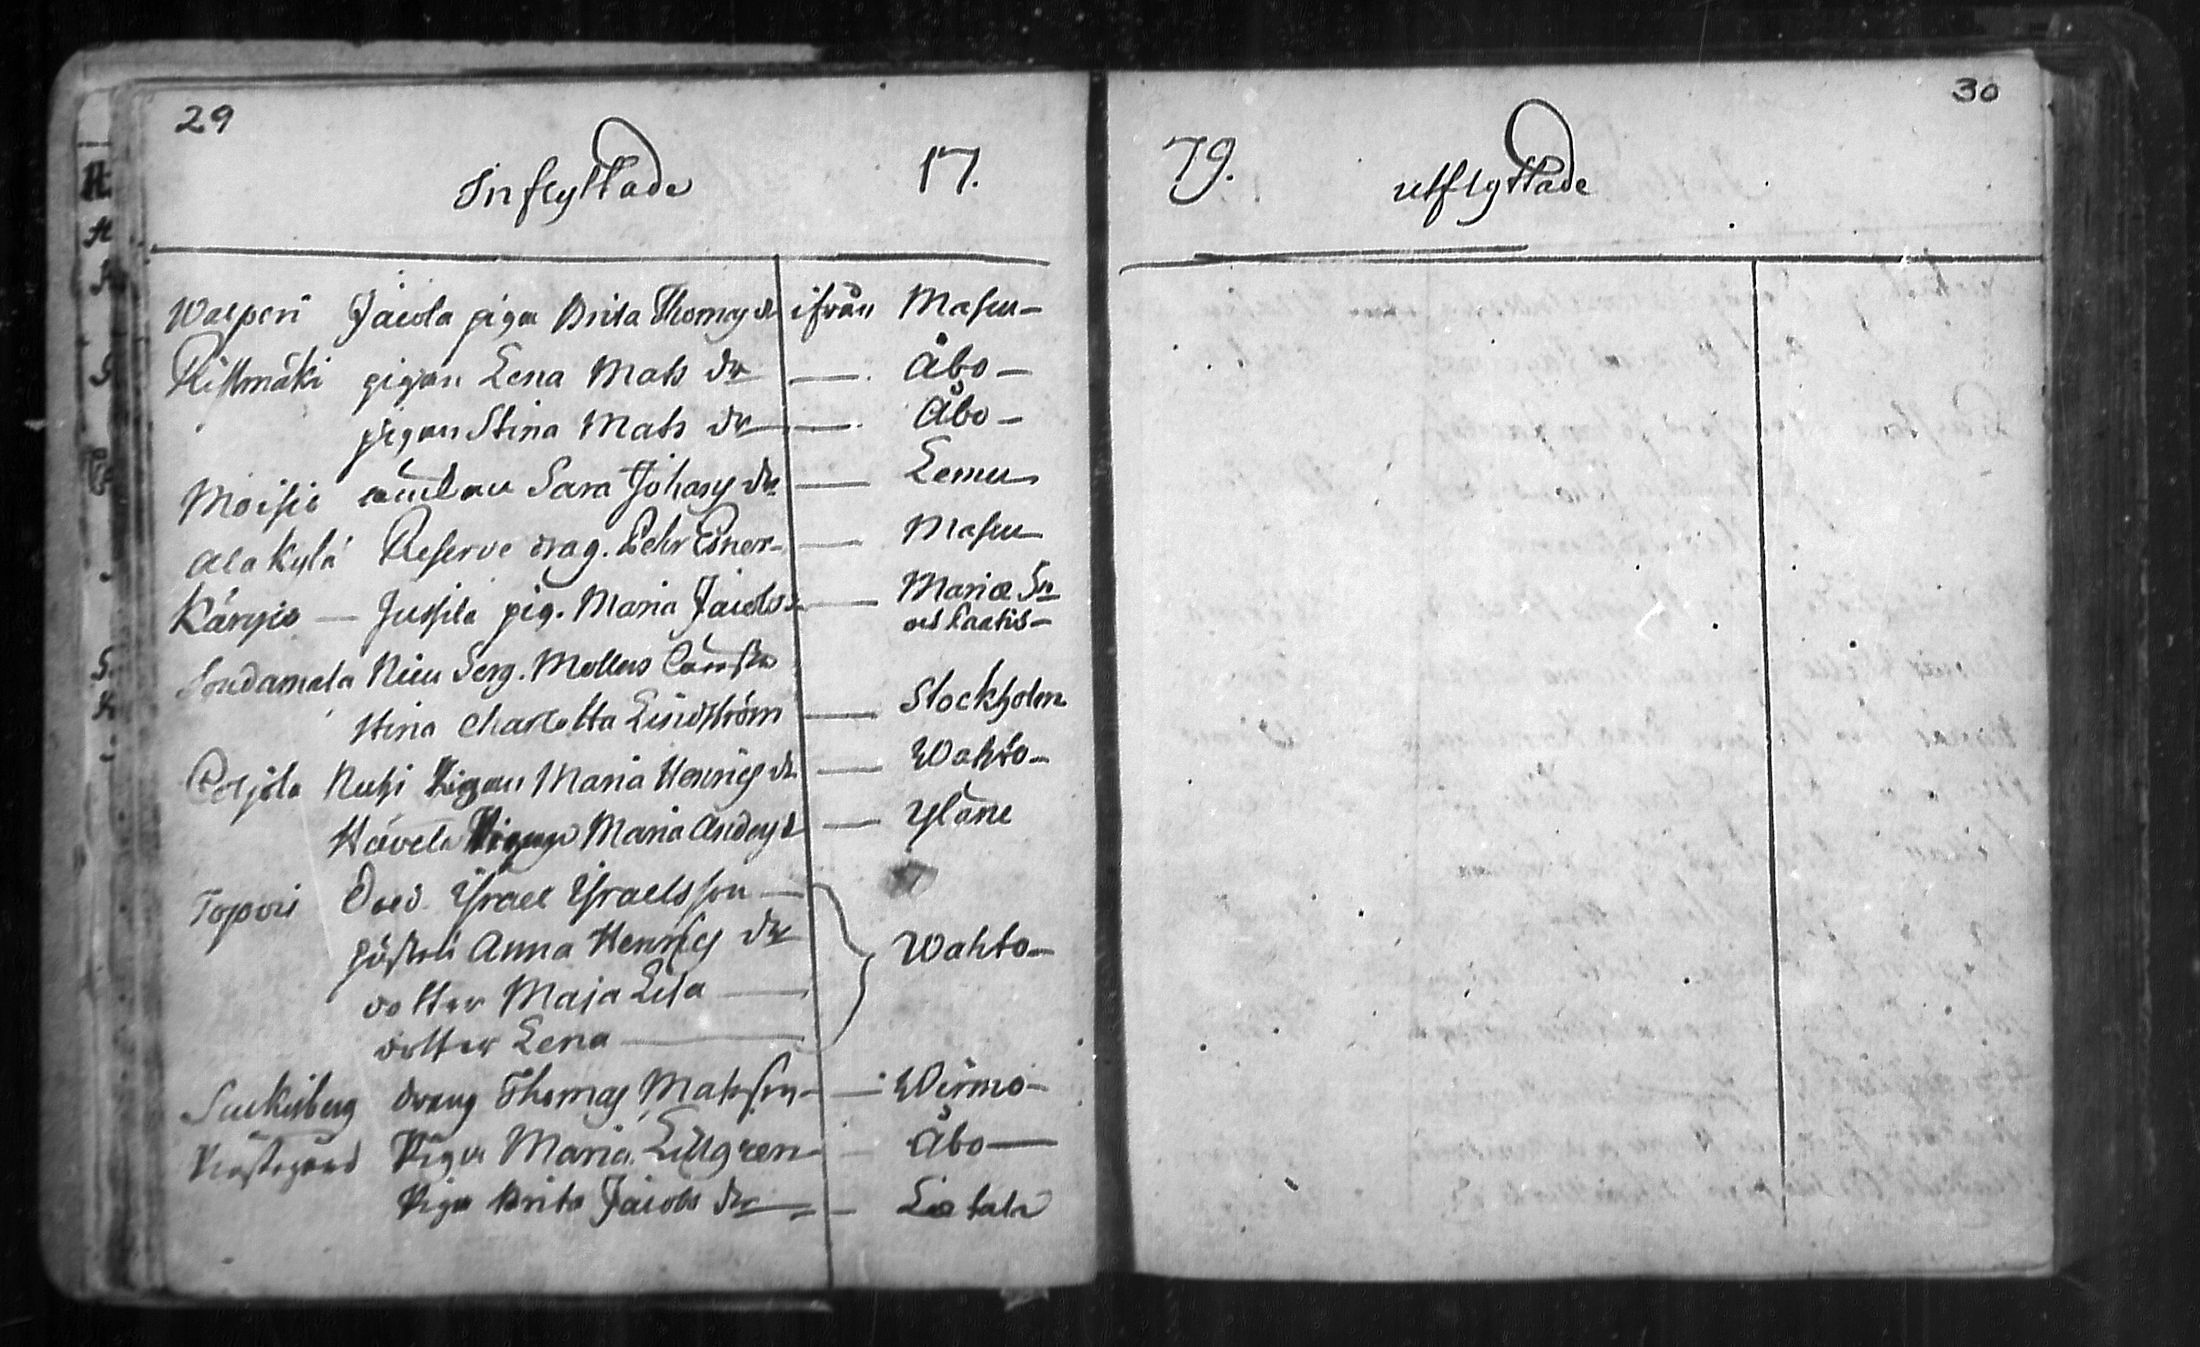 29
Inflyttade 17.
Walperi Jacola pigan Brita Thomas dr ifrån Masku
Ristimäki pigan Lena Mats dr — Åbo
pigan Stina Mats dr — Åbo
Moisio Sara Johans dr — Lemu
Alakylä Reserve drag. Pehr Esner — Masku
Kärpis — Jussila pig. Maria Jacobs — Mariæ Sn
Soudamala Nicu Serg. Mollers
Stina Charlotta Lindström — Stockholm
Pohjola Ruhi Pigan Maria Henrics dr — Wahto
Hävelä Pigan Maria Anders d — Yläne
Topois Israel Israelsson
Anna Henrics dr Wahto
dotter Maja Lisa
dotter Lena
Suckisberg dräng Thomas Matsson — Wirmo
Prästegård Piga Maria Lillgren — Åbo
Piga Brita Jacobs dr — Letala
30
79. utflyttade